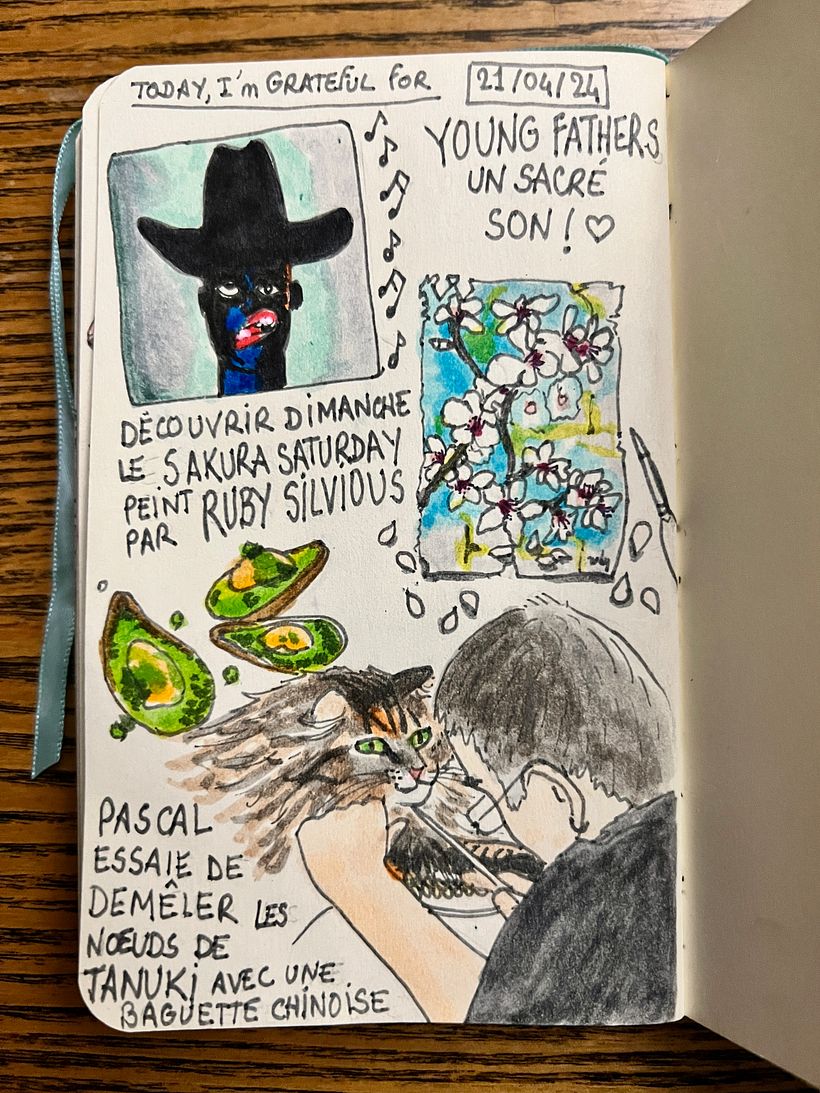 TODAY, I'm GRATEFUL FOR
21/04/24
YOUNG FATHERS
UN SACRÉ
SON ! ♡
DÉCOUVRIR DIMANCHE
LE SAKURA SATURDAY
PEINT RUBY SILVIOUS
PAR
PASCAL
ESSAIE DE
DEMÊLER LES
NŒUDS DE
TANUKI AVEC UNE
BAGUETTE CHINOISE